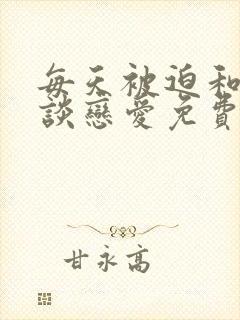 每天被迫和
談戀愛免費
甘永高